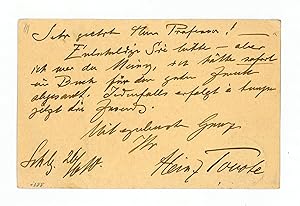 Sehr geehrter Herr Professor! —
Entschuldigen Sie bitte — aber
ich war der Meinung, ich hätte sofort
ein Buch für den guten Zweck
abgesandt. Jedenfalls erfolgt
jetzt die
Mit ergebenstem Gruss
Ihr
Schlz. 26/ Heinz Tovote